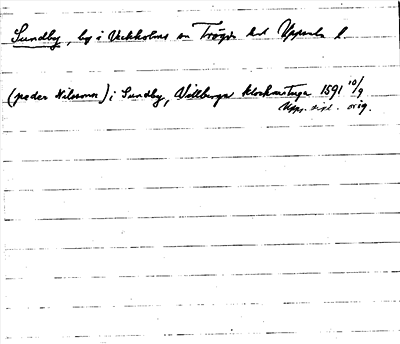 Sundby, by i Veckholms sn Trögds hd Uppsala l
(peder Nilsson) i Sundby, Villberga klockastuga 1591 10/9
Upps. dipl. orig.